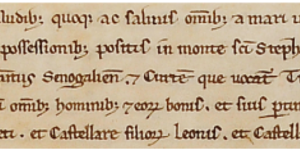 ludib; quoq; ac salinis om̅ib; a mari
possessionib; positis in monte sc̅i Steph
Senogalien̅. ⁊ Ciuit̅e que uocat̅
om̅ib; hominib; ⁊ eoꝝ bonis. et suis ꝑtin
et Castellare filioꝝ leonis. et Castell